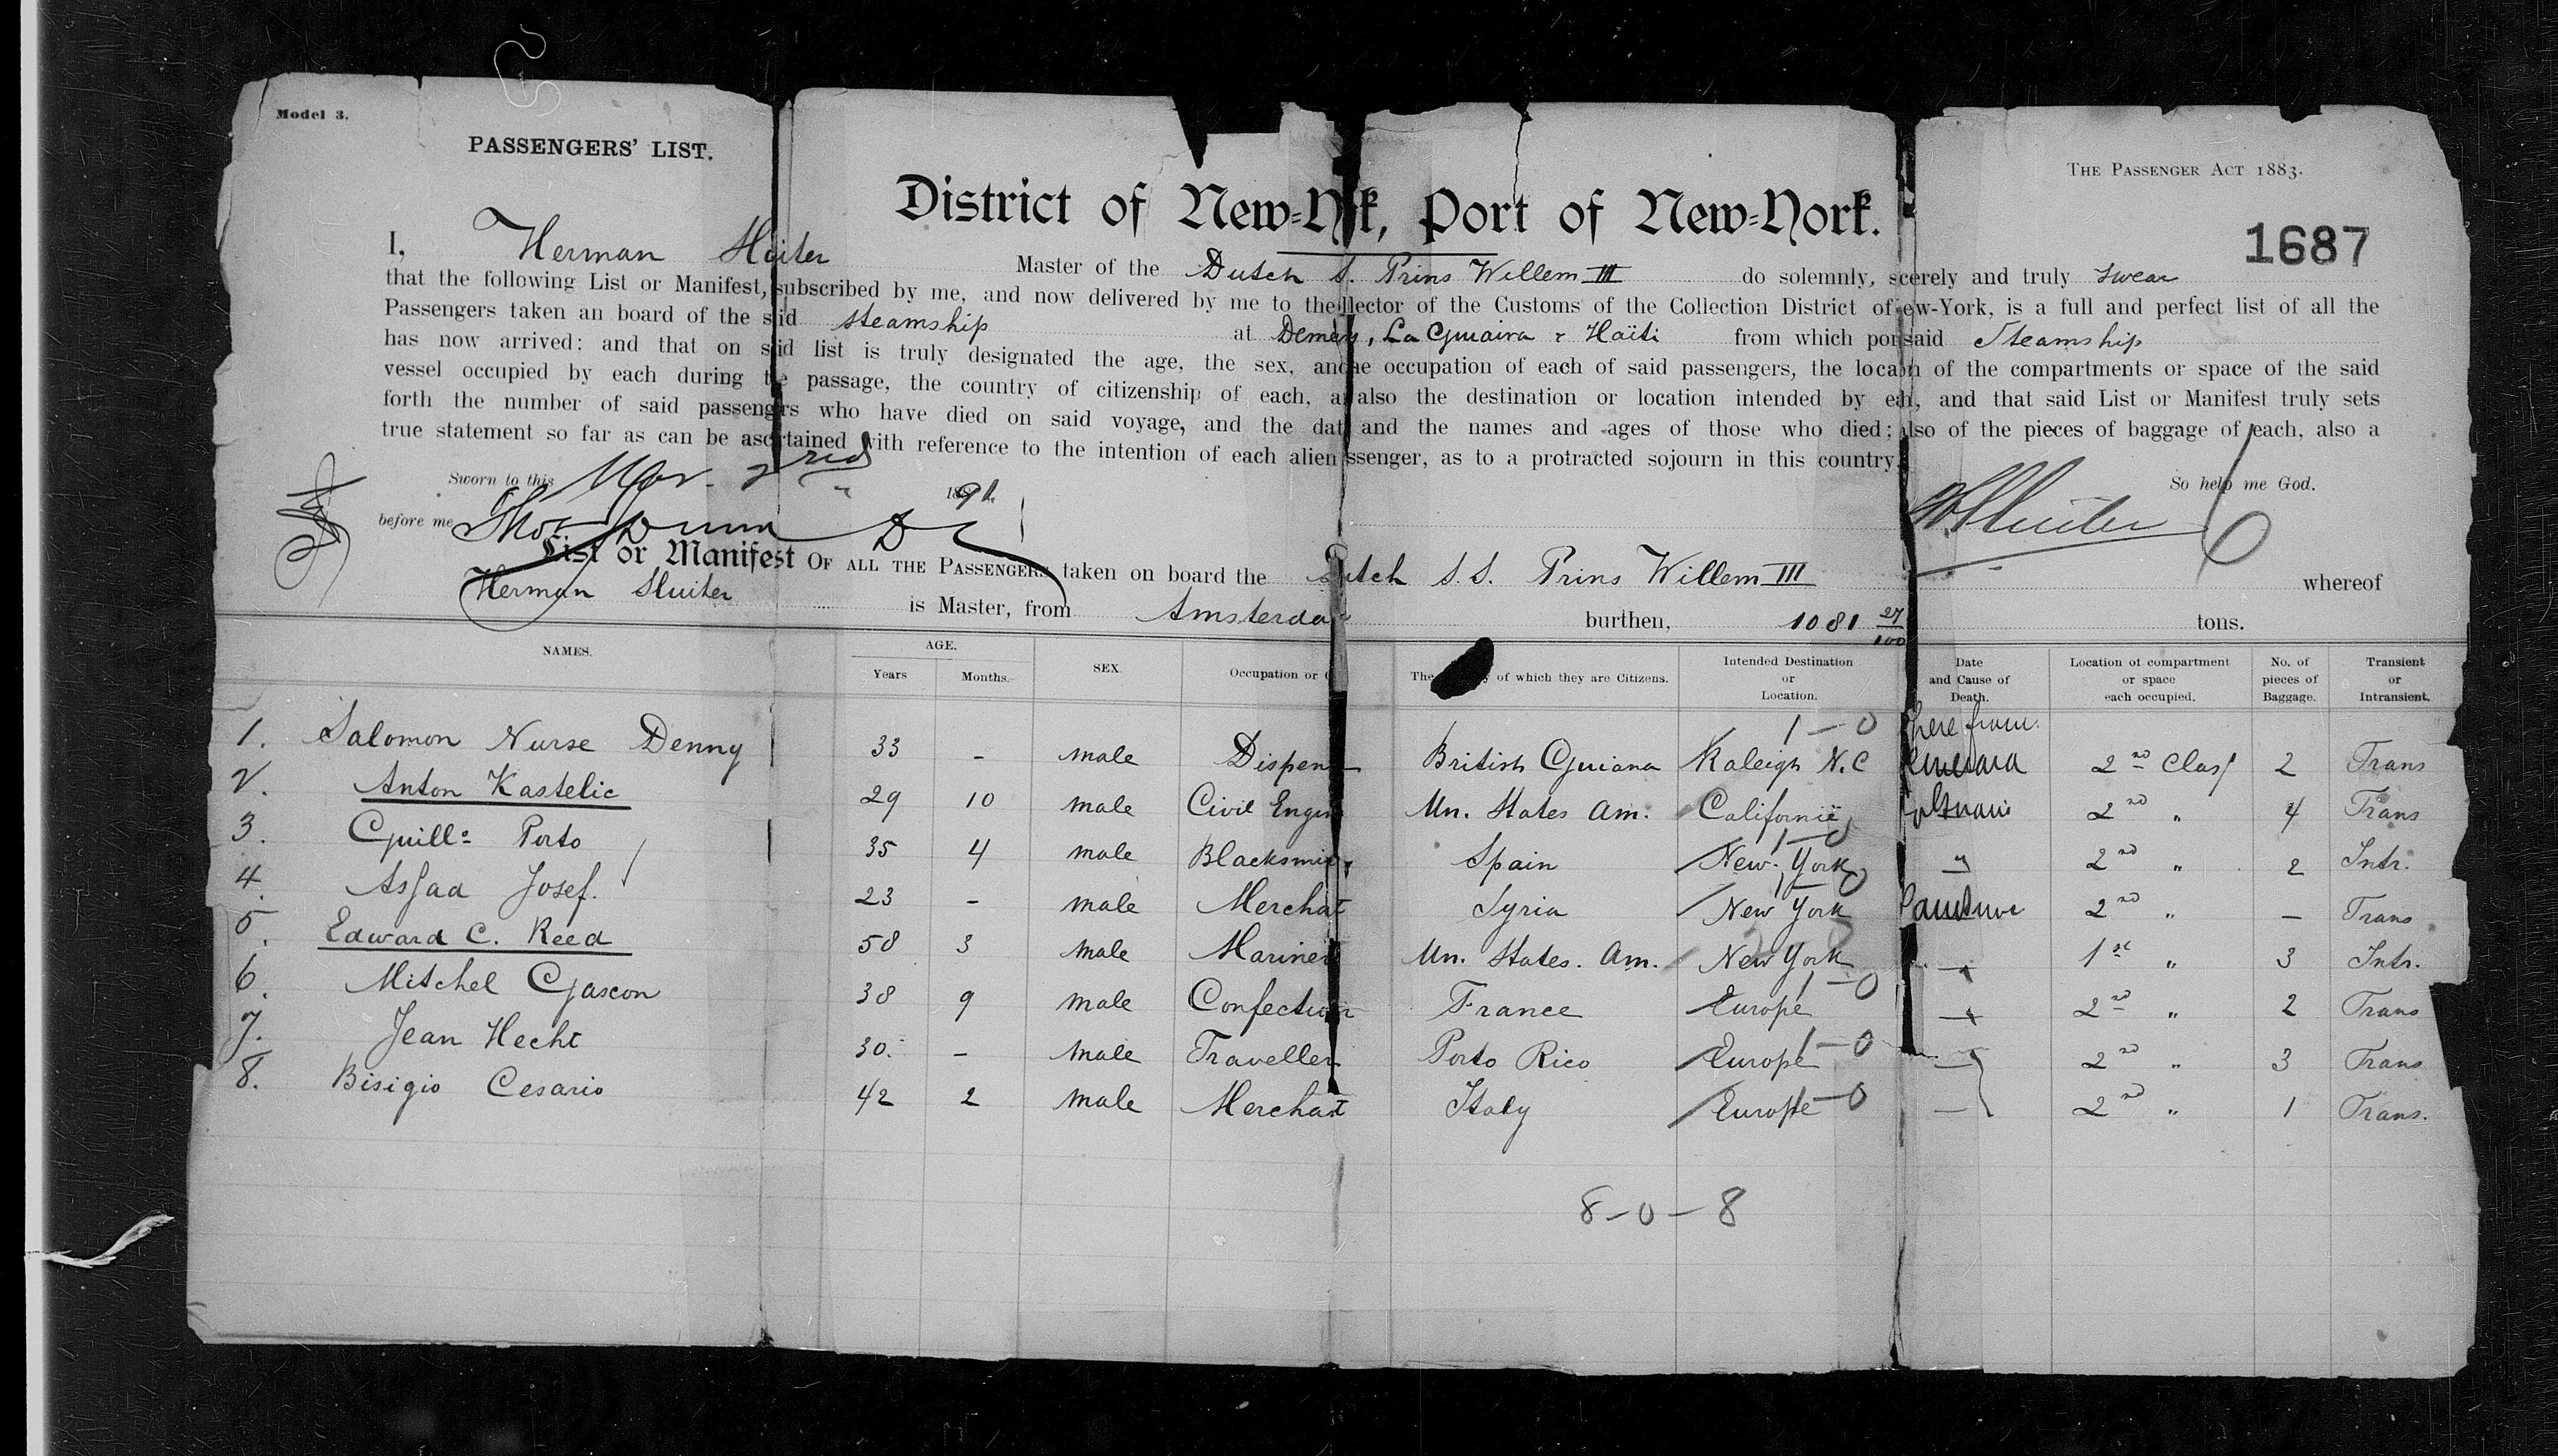 Model 3.
PASSENGERS' LIST.
THE PASSENGER ACT 1883.
District of New-Yk, Port of New-York.
1687
I, Herman Sluiter Master of the Dutch S. Prins Willem III do solemnly, scerely and truly swear
that the following List or Manifest, subscribed by me, and now delivered by me to the llector of the Customs of the Collection District of ew-York, is a full and perfect list of all the
Passengers taken an board of the said steamship at Demery, La Guaira & Haïti from which por said Steamship
has now arrived: and that on said list is truly designated the age, the sex, and he occupation of each of said passengers, the locan of the compartments or space of the said
vessel occupied by each during the passage, the country of citizenship of each, a also the destination or location intended by eah, and that said List or Manifest truly sets
forth the number of said passengers who have died on said voyage, and the dat and the names and ages of those who died; also of the pieces of baggage of each, also a
true statement so far as can be ascertained with reference to the intention of each alien ssenger, as to a protracted sojourn in this country.
Sworn to this Mar. 2nd 189
So help me God.
before me Thos Dunn D
H Sluiter
List or Manifest OF ALL THE PASSENGERS taken on board the Dutch S.S. Prins Willem III whereof
Herman Sluiter is Master, from Amsterda burthen, 1081 27/100 tons.
NAMES. AGE. Years Months. SEX. Occupation or The y of which they are Citizens. Intended Destination or Location. Date and Cause of Death. Location of compartment or space each occupied. No. of pieces of Baggage. Transient or Intransient.
1. Salomon Nurse Denny 33 - male Dispen British Guiana Raleigh N.C 1-0 2nd Class 2 Trans
2. Anton Kastelic 29 10 male Civil Engin Un. States Am. Californië 2nd " 4 Trans
3. Guillo Porto 35 4 male Blacksmi Spain New-York 1-0 2nd " 2 Intr.
4. Assad Josef. 23 - male Merchat Syria New York 1-0 2nd " - Trans
5. Edward C. Reed 58 3 male Mariner Un. States. Am. New York 1st " 3 Intr.
6. Mitchel Gascon 38 9 male Confection France Europe 1-0 2nd " 2 Trans
7. Jean Hecht 30. - male Traveller Porto Rico Europe 1-0 - 2nd " 3 Trans
8. Bisigio Cesario 42 2 male Merchat Italy Europe 1-0 - 2nd " 1 Trans.
8-0-8